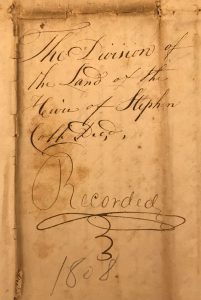 The Division of
the Land of the
Heirs of Stephen
Decd,
Recorded
1808